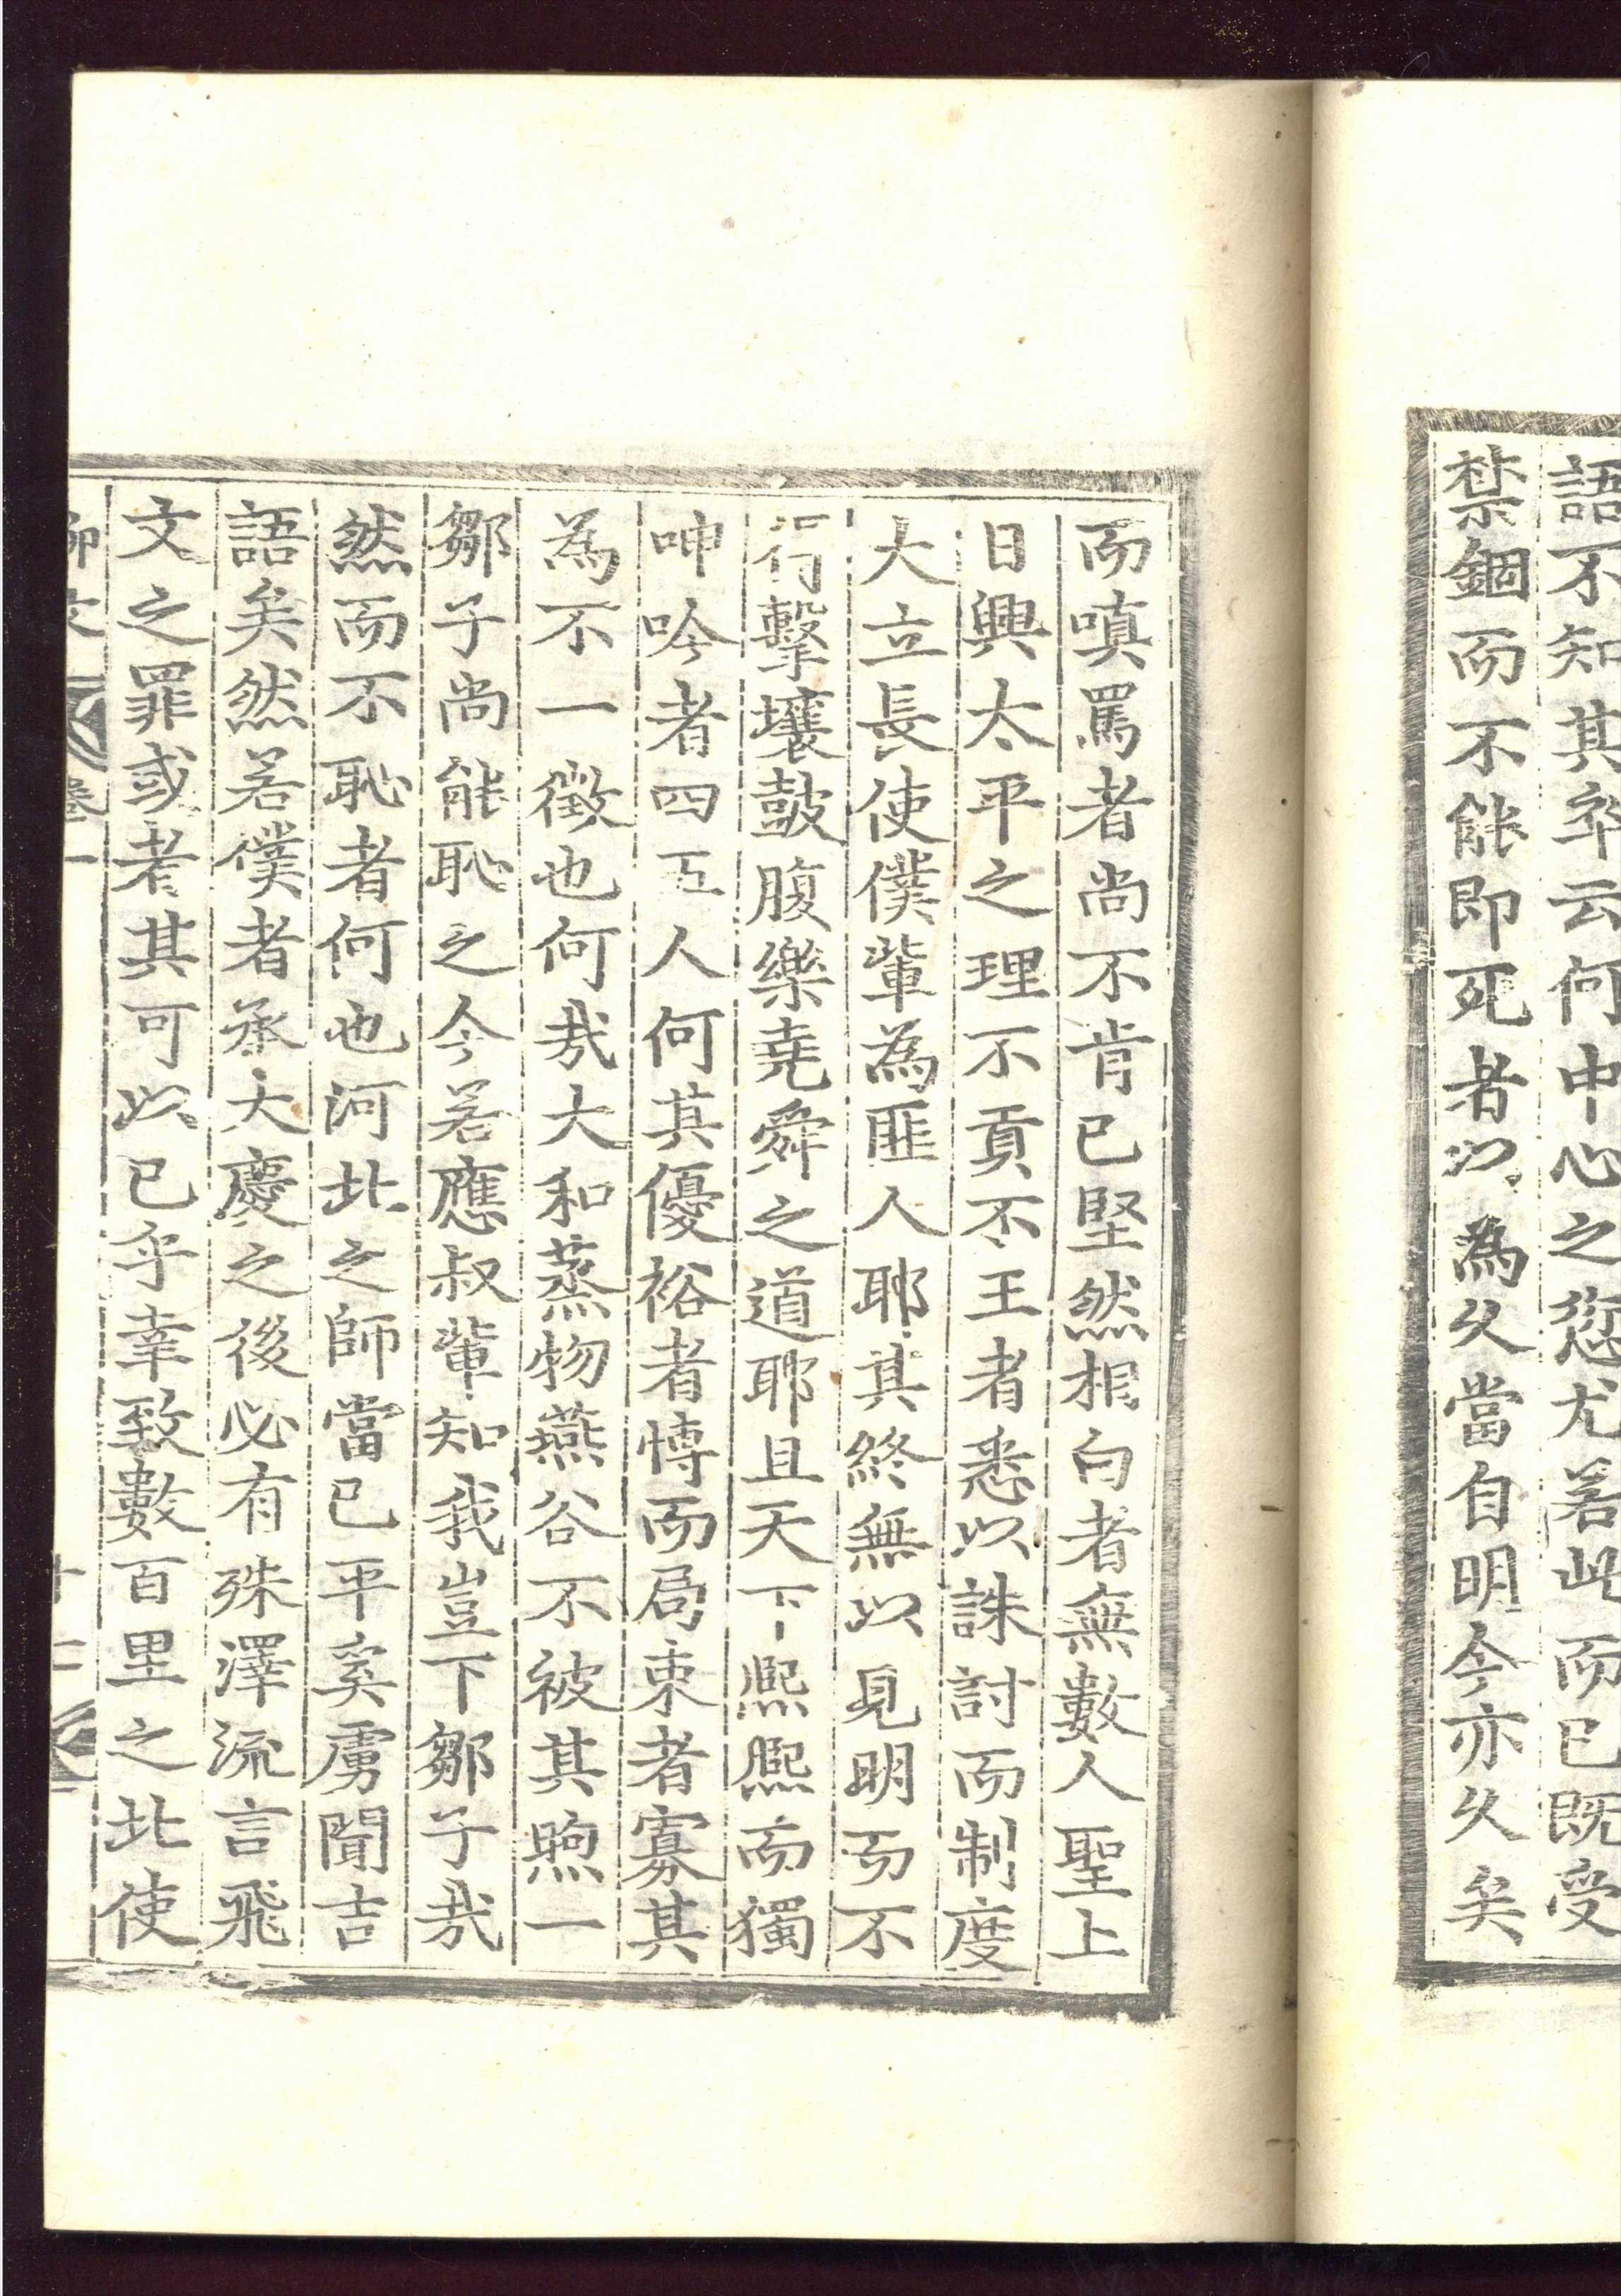 語不知其卒云何中心之愆尤若此而已既受
禁錮而不能即死者以為久當自明今亦久矣
而嗔罵者尚不肯已堅然相白者無數人聖上
日興太平之理不貢不王者悉以誅討而制度
大立長使僕輩為匪人耶其終無以見明而不
得行擊壤鼓腹樂堯舜之道耶且天下熙熙而獨
呻吟者四五人何其優裕者愽而局束者寡其
為不一徵也何㢤大和蒸物燕谷不被其煦一
鄒子尚能恥之今若應叔輩知我豈下鄒子㢤
然而不恥者何也河北之師當已平奚虜聞吉
語矣然若僕者承大慶之後必有殊澤流言飛
文之罪或者其可以已乎幸致數百里之北使
柳文 卷一 十二